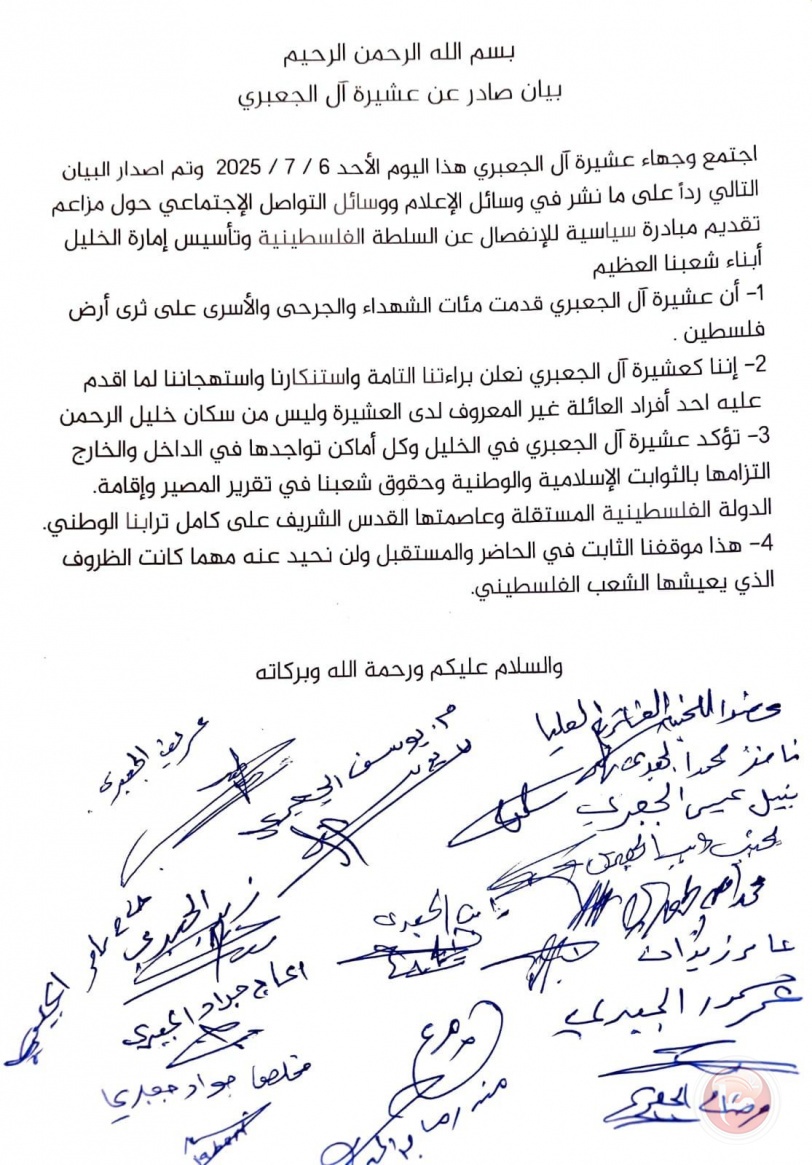 بسم الله الرحمن الرحيم
بيان صادر عن عشيرة آل الجعبري
اجتمع وجهاء عشيرة آل الجعبري هذا اليوم الأحد 6 / 7 / 2025 وتم اصدار البيان
التالي رداً على ما نشر في وسائل الإعلام ووسائل التواصل الإجتماعي حول مزاعم
تقديم مبادرة سياسية للإنفصال عن السلطة الفلسطينية وتأسيس إمارة الخليل
أبناء شعبنا العظيم
1- أن عشيرة آل الجعبري قدمت مئات الشهداء والجرحى والأسرى على ثرى أرض
فلسطين .
2- إننا كعشيرة آل الجعبري نعلن براءتنا التامة واستنكارنا واستهجاننا لما اقدم
عليه احد أفراد العائلة غير المعروف لدى العشيرة وليس من سكان خليل الرحمن
3- تؤكد عشيرة آل الجعبري في الخليل وكل أماكن تواجدها في الداخل والخارج
التزامها بالثوابت الإسلامية والوطنية وحقوق شعبنا في تقرير المصير وإقامة.
الدولة الفلسطينية المستقلة وعاصمتها القدس الشريف على كامل ترابنا الوطني.
4- هذا موقفنا الثابت في الحاضر والمستقبل ولن نحيد عنه مهما كانت الظروف
الذي يعيشها الشعب الفلسطيني.
والسلام عليكم ورحمة الله وبركاته
العليا
الجعبري
م. يوسف الجعبري
نبيل عيسى الجعبري
الجعبري
الحاج جواد الجعبري
الجعبري
جواد جعبري
الجعبري